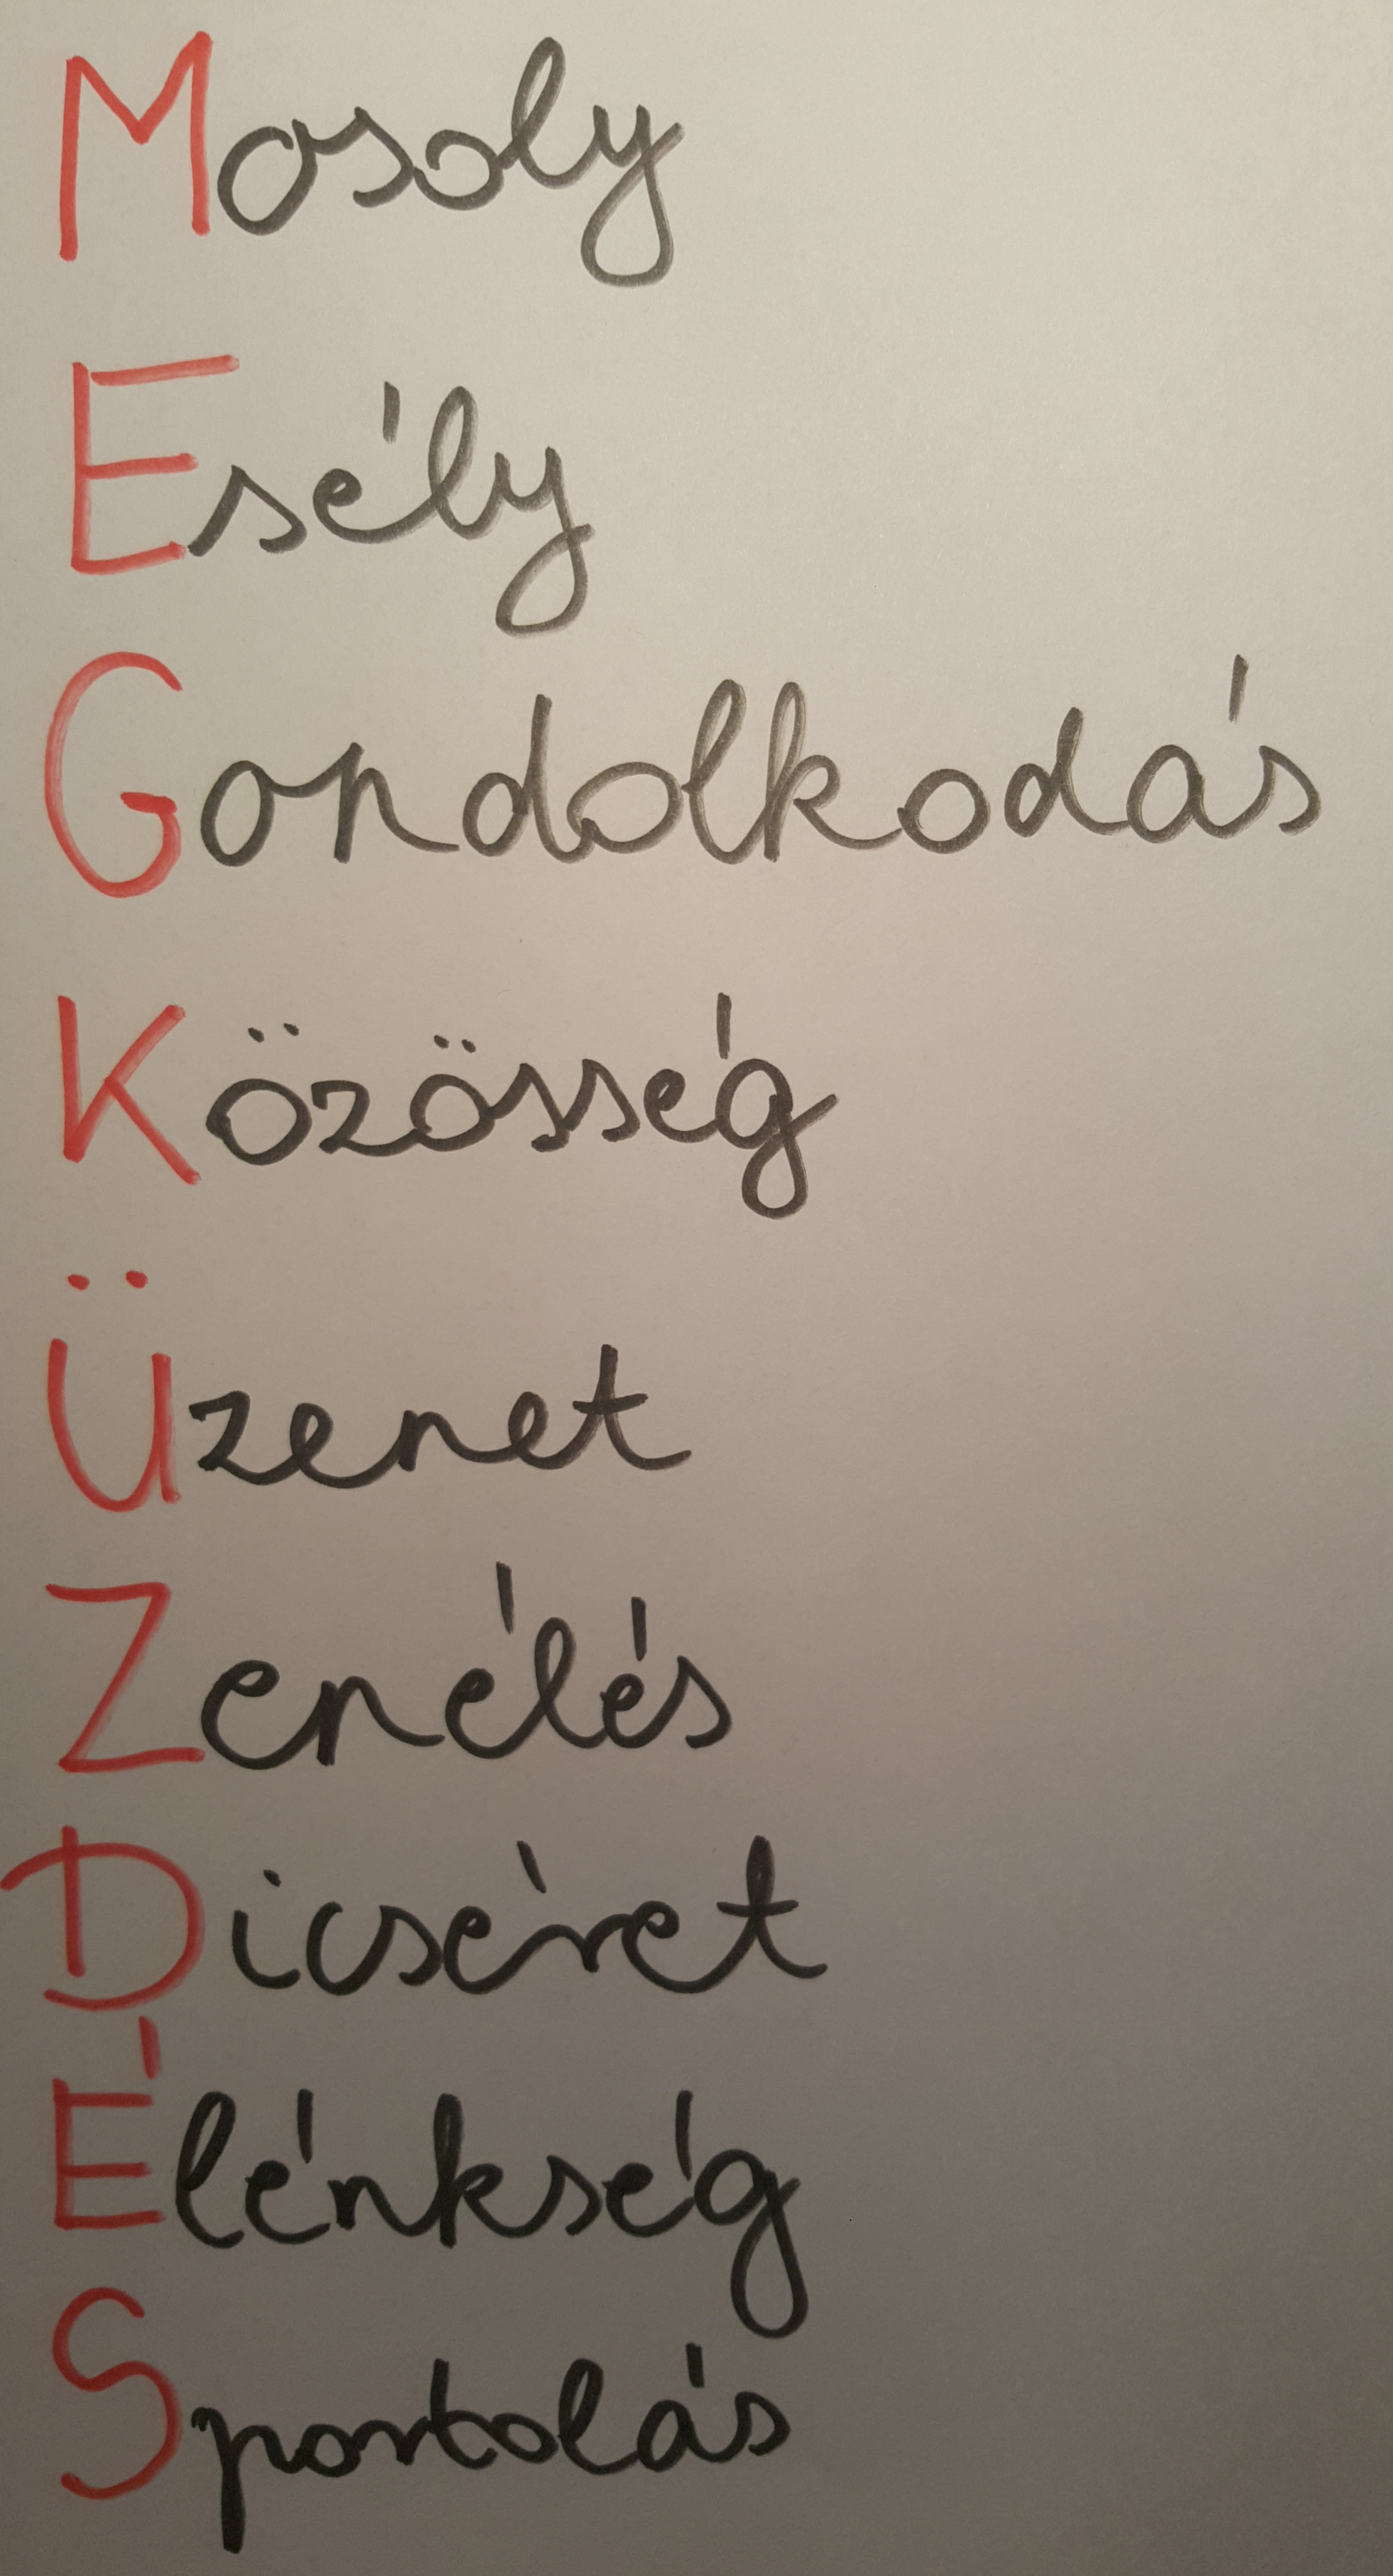 Mosoly
Esély
Gondolkodás
Közösség
Üzenet
Zenélés
Dicséret
Élénkség
Sportolás